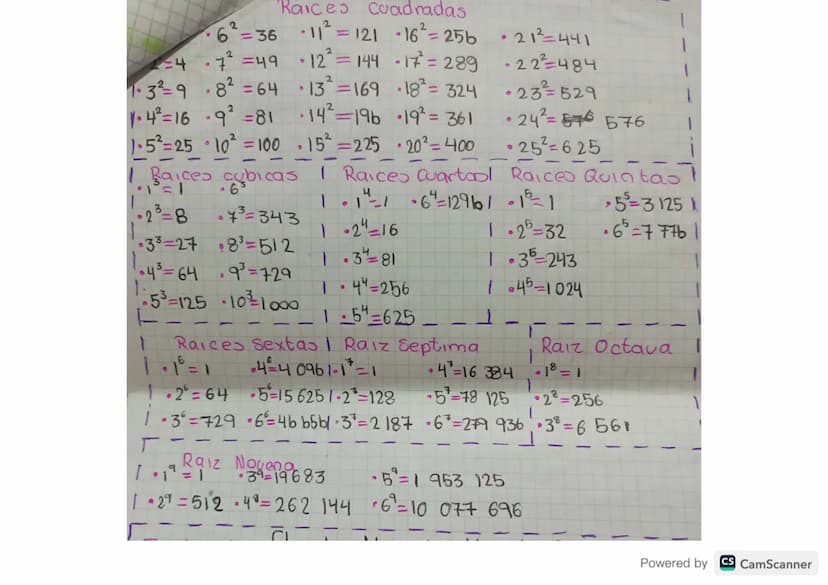 Raices Cuadradas
· 6² = 36 · 11² = 121 · 16² = 256 · 21² = 441
2 = 4 · 7² = 49 · 12² = 144 · 17² = 289 · 22² = 484
· 3² = 9 · 8² = 64 · 13² = 169 · 18² = 324 · 23² = 529
· 4² = 16 · 9² = 81 · 14² = 196 · 19² = 361 · 24² = 576 576
· 5² = 25 · 10² = 100 · 15² = 225 · 20² = 400 · 25² = 625
Raices cubicas
· 1³ = 1 · 6³
· 2³ = 8 · 7³ = 343
· 3³ = 27 · 8³ = 512
· 4³ = 64 · 9³ = 729
· 5³ = 125 · 10³ = 1000
Raices Cuartas
· 1⁴ = 1 · 6⁴ = 1296
· 2⁴ = 16
· 3⁴ = 81
· 4⁴ = 256
· 5⁴ = 625
Raices Quintas
· 1⁵ = 1 · 5⁵ = 3 125
· 2⁵ = 32 · 6⁵ = 7 776
· 3⁵ = 243
· 4⁵ = 1 024
Raices Sextas
· 1⁶ = 1 · 4⁶ = 4 096
· 2⁶ = 64 · 5⁶ = 15 625
· 3⁶ = 729 · 6⁶ = 46 656
Raiz Septima
· 1⁷ = 1 · 4⁷ = 16 384
· 2⁷ = 128 · 5⁷ = 78 125
· 3⁷ = 2 187 · 6⁷ = 279 936
Raiz Octava
· 1⁸ = 1
· 2⁸ = 256
· 3⁸ = 6 561
Raiz Novena
· 1⁹ = 1 · 3⁹ = 19683 · 5⁹ = 1 953 125
· 2⁹ = 512 · 4⁹ = 262 144 · 6⁹ = 10 077 696
Powered by CS CamScanner